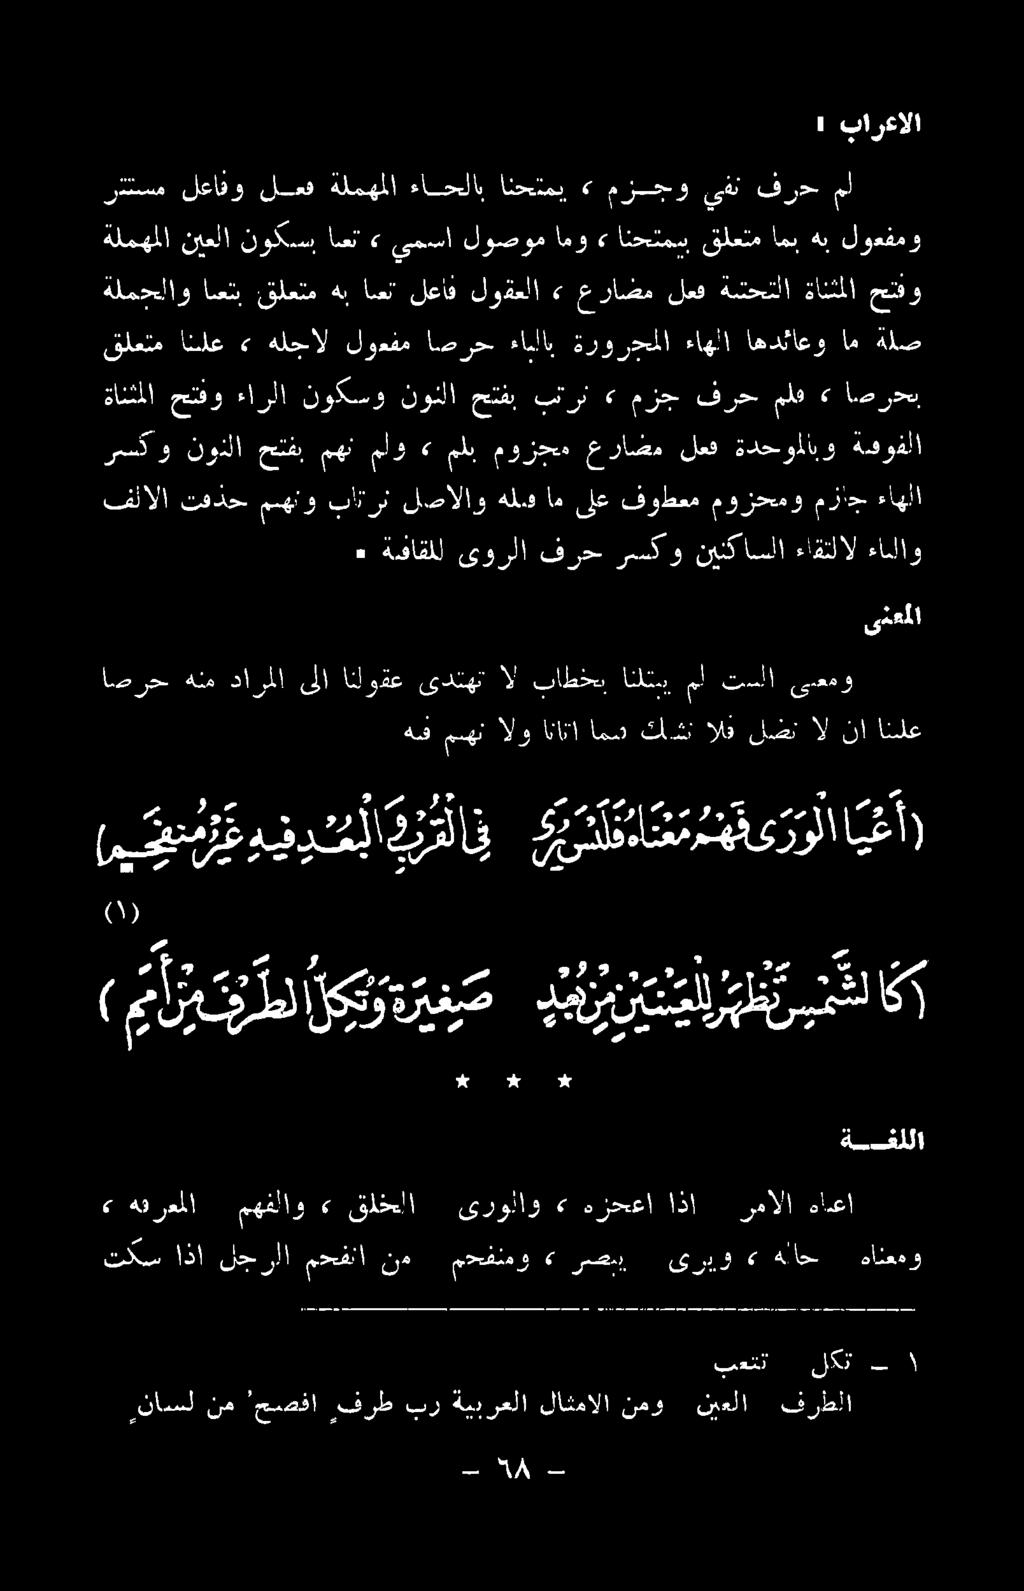 الاعراب :
لم حرف نفي وجـزم ، يمتحنا بالحـاء المهملة فعـل وفاعل مستتر
ومفعول به بما متعلق بيمتحنا ، وما موصول اسمي ، تعيا بسكون العين المهملة
وفتح المثناة التحتية فعل مضارع ، العقول فاعل تعيا به متعلق بتعيا والجملة
صلة ما وعائدها الهاء المجرورة بالباء حرصا مفعول لاجله ، علينا متعلق
بحرصا ، فلم حرف جزم ، نرتب بفتح النون وسكون الراء وفتح المثناة
الفوقية وبالموحدة فعل مضارع مجزوم بلم ، ولم نهم بفتح النون وكسر
الهاء جازم ومجزوم معطوف على ما قبله والاصل نرتاب ونهيم حذفت الالف
والياء لالتقاء الساكنين وكسر حرف الروى للقافية .
المعنى
ومعنى البيت لم يبتلنا بخطاب لا تهتدى عقولنا الى المراد منه حرصا
علينا ان لا نضل فلا نشك فيما اتانا ولا نهيم فيه
(أَعْيَا الْوَرَى فَهْمُ مَعْنَاهُ فَلَيْسَ يُرَى فِي الْقُرْبِ وَالْبُعْـدِ فِيهِ غَيْرُ مُنفَحِـمِ)
(١)
(كَالشَّمْسِ تَظْهَرُ لِلْعَيْنَيْنِ مِنْ بُعُدٍ صَغِيرَةً وَتُكِلُّ الطَّرْفَ مِنْ أَمَمِ)
* * *
اللغــة
اعياه الامر اذا اعجزه ، والورى الخلق ، والفهم المعرفه ،
ومعناه حاله ، ويرى يبصر ، ومنفحم من انفحم الرجل اذا سكت
١ – تكل تتعب
الطرف العين ومن الامثال العربية رب طرفٍ افصحُ من لسانٍ
– ٦٨ –